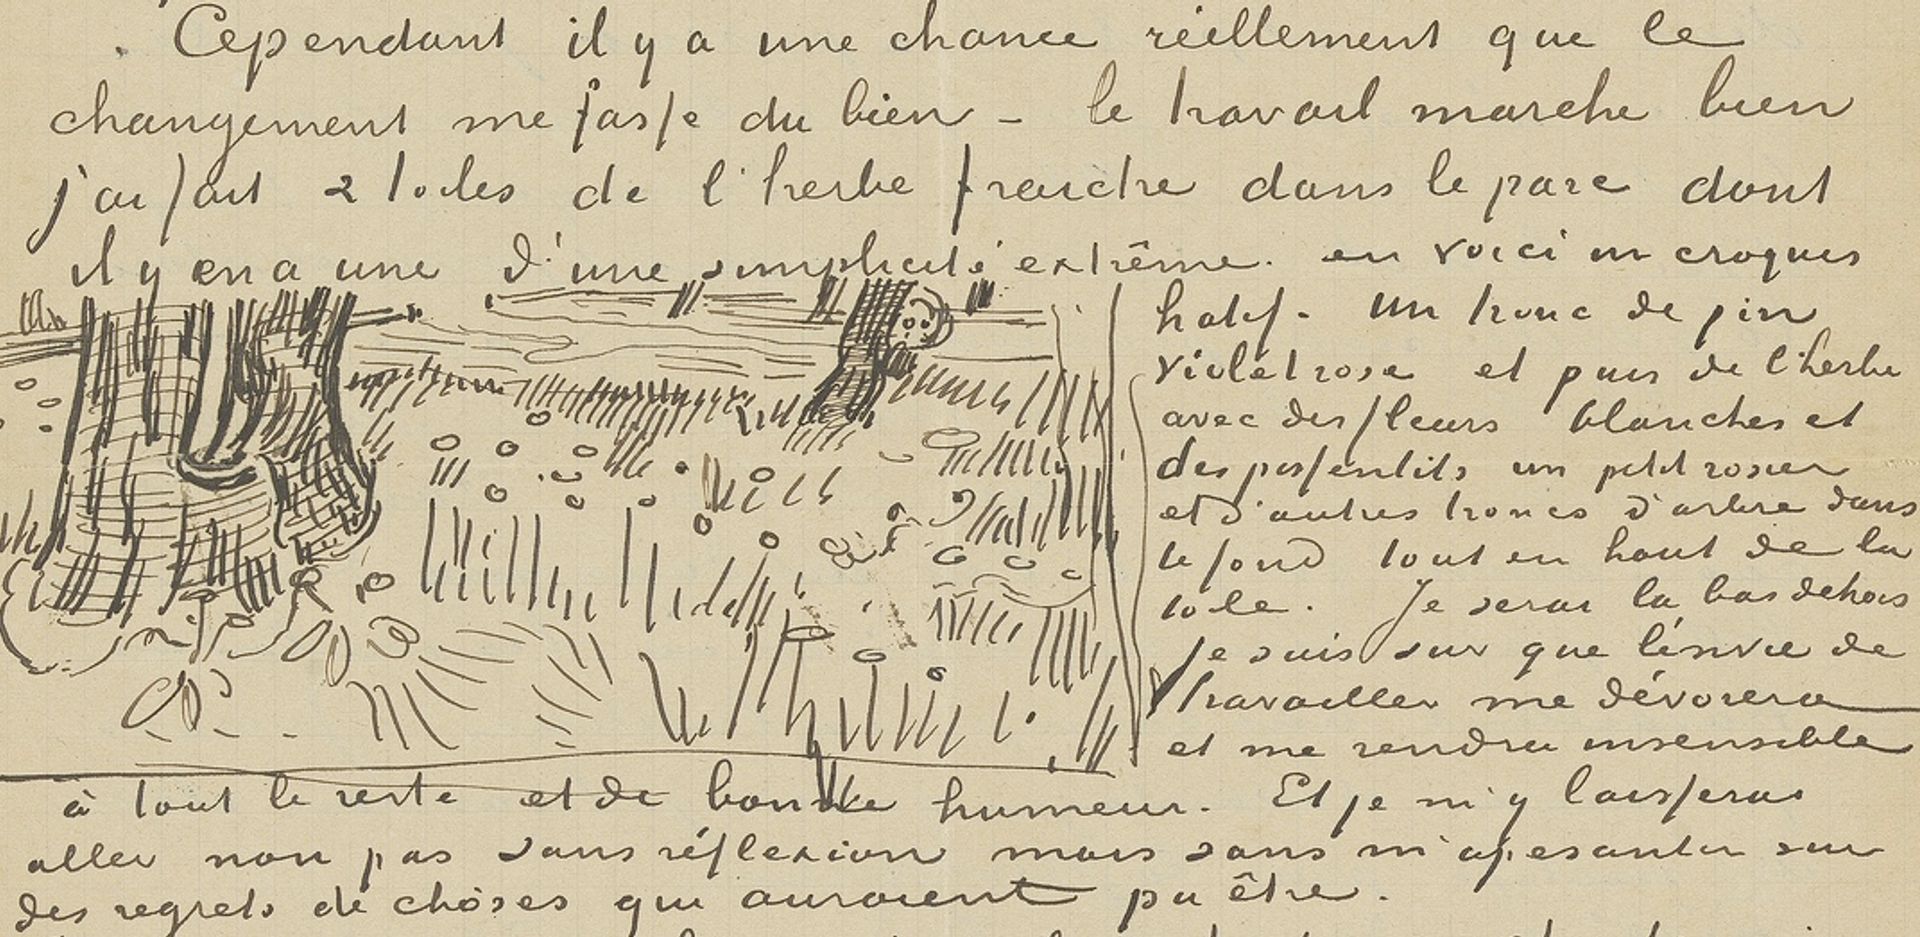 Cependant il y a une chance réellement que le
changement me fasse du bien – le travail marche bien
j'ai fait 2 toiles de l'herbe fraiche dans le parc dont
il y en a une d'une simplicité extrême. en voici un croquis
hatif. Un tronc de pin
violet rose et puis de l'herbe
avec des fleurs blanches et
des pissenlits un petit rosier
et d'autres troncs d'arbre dans
le fond tout en haut de la
toile. Je serai là bas dehors
je suis sur que l'envie de
travailler me dévorera
et me rendra insensible
à tout le reste et de bonne humeur. Et je m'y laisserai
aller non pas sans réflexion mais sans m'apesantir sur
des regrets de choses qui auraient pu être.